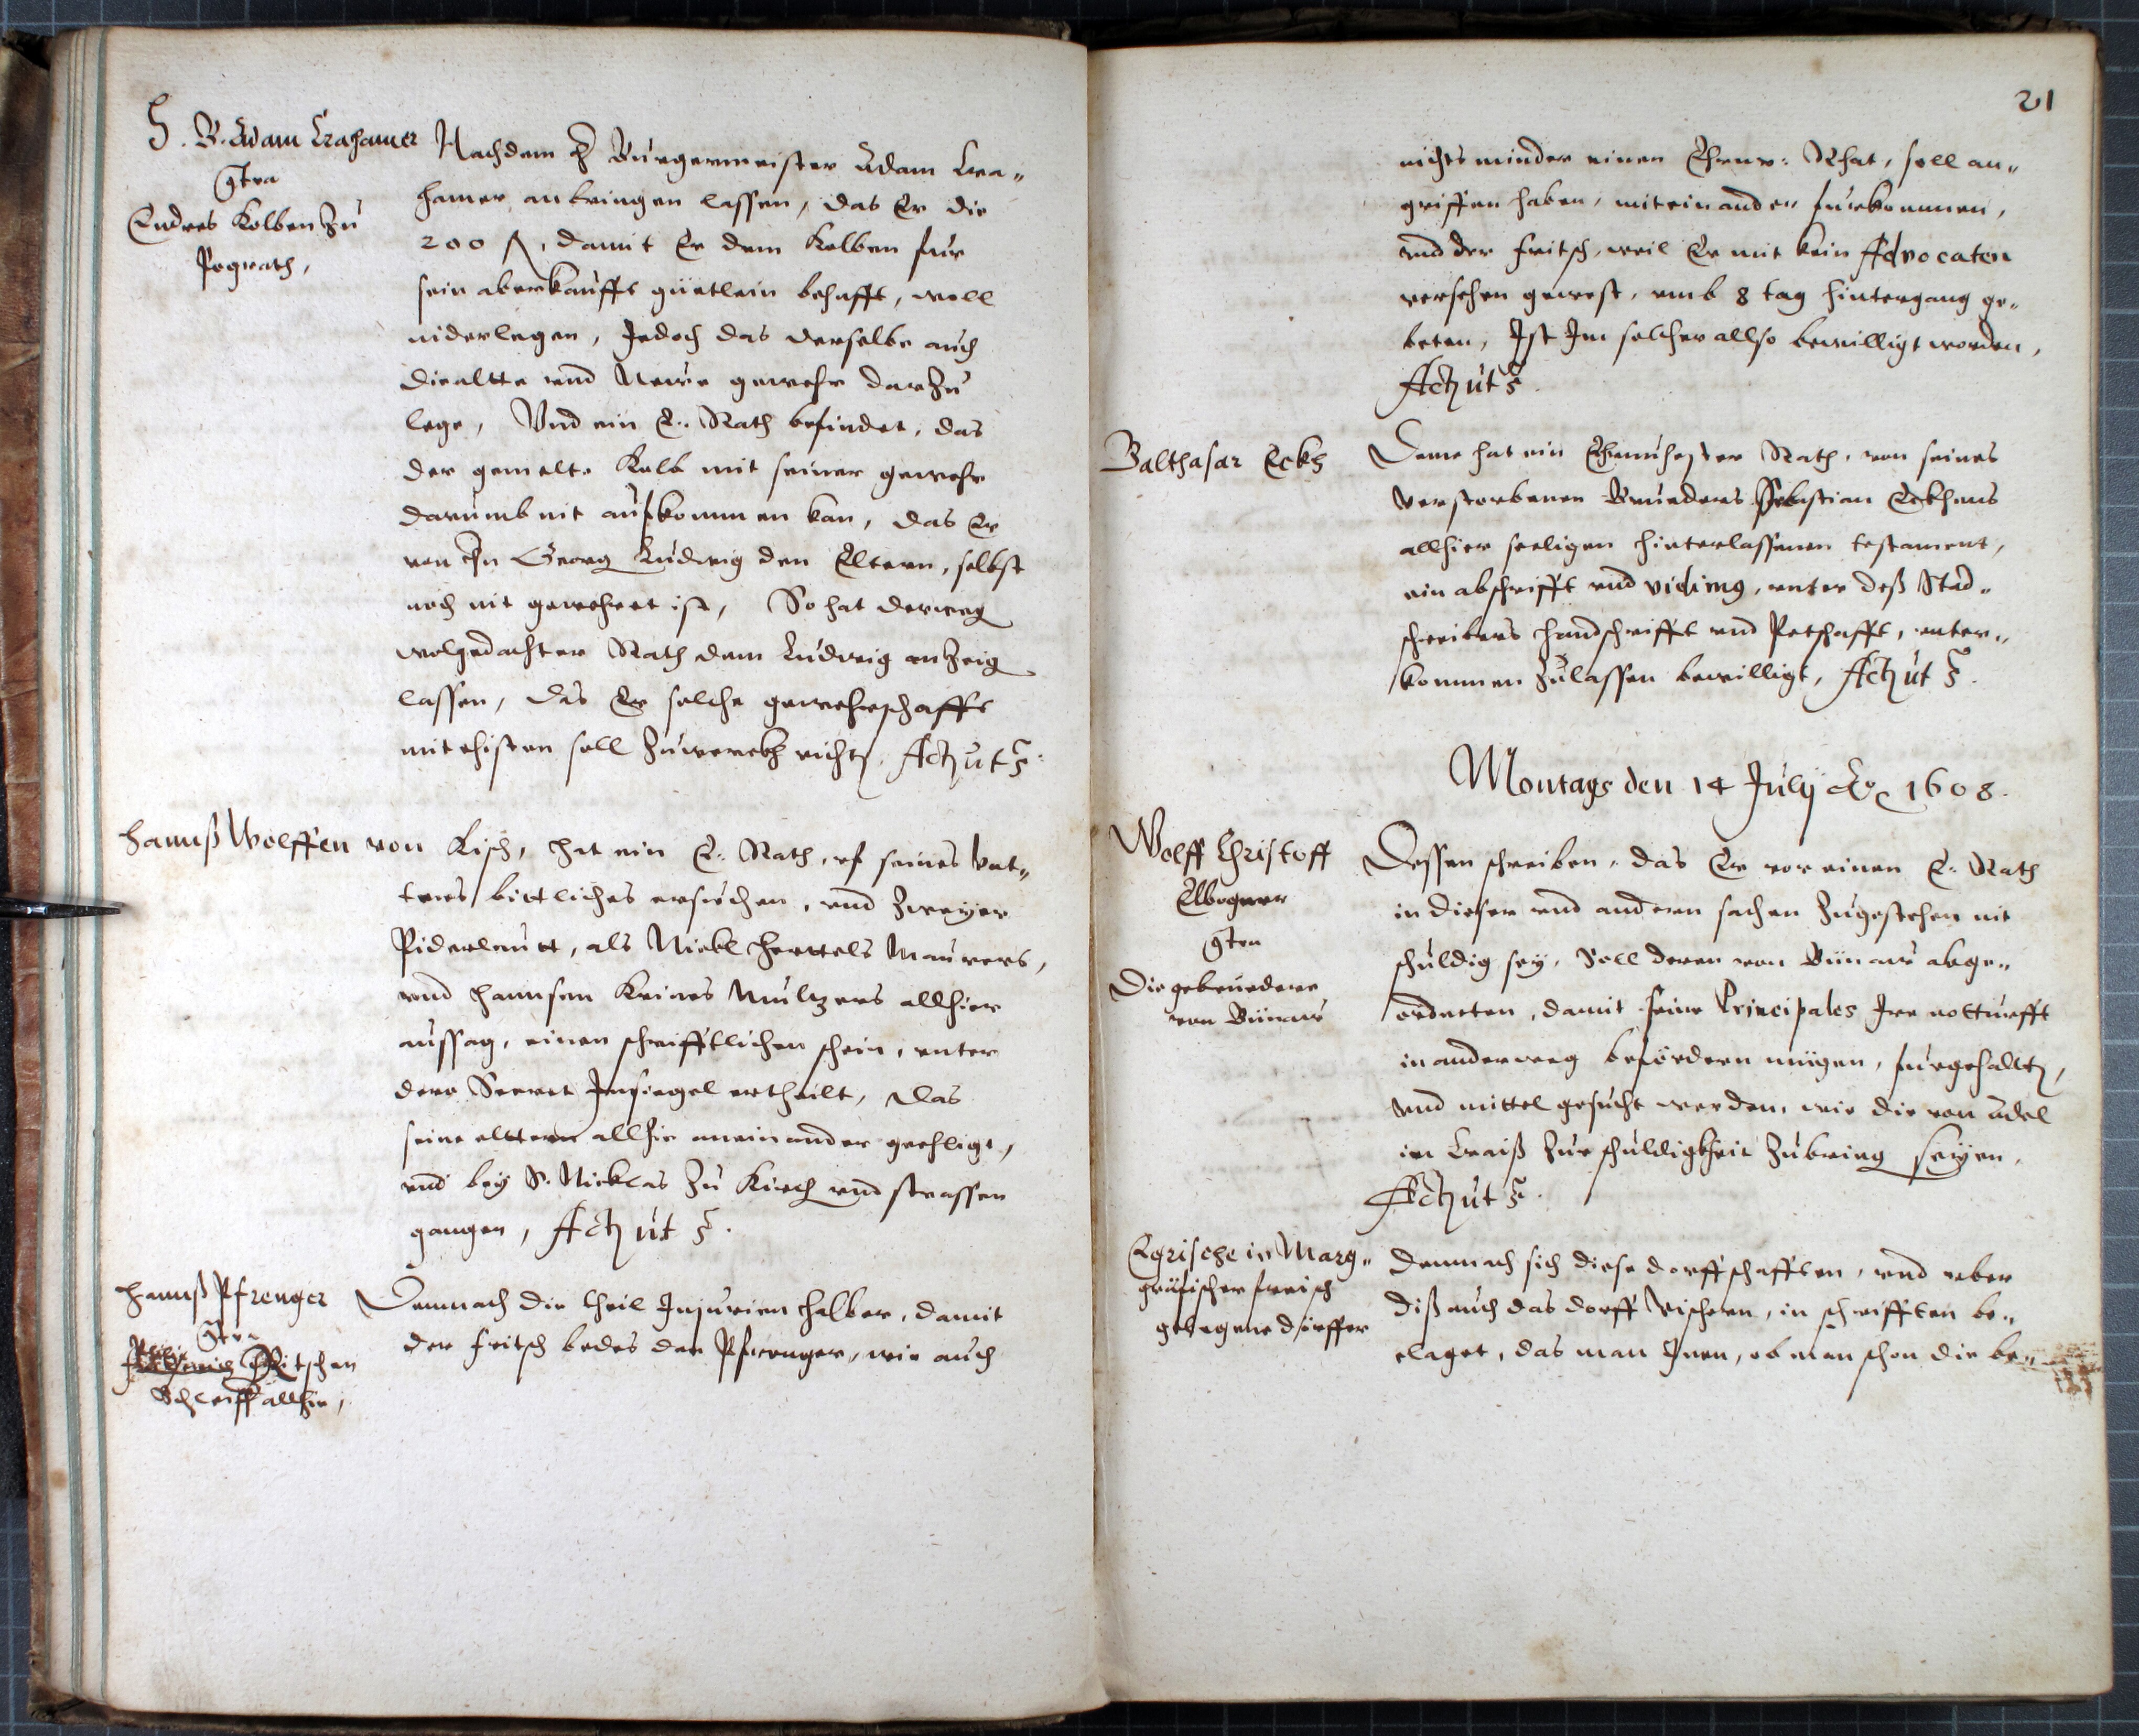 H. B. Adam Crahamer
Contra
Endres Kolben zu
Pograth,
Nachdem H Burgermeister Adam Cra„
hamer anbringen lassen, das Er die
200 fl, damit Er dem Kolben fur
sein aberkaufft güetlein behafft, woll
niderlegen, Jedoch das derselbe auch
die altte vnd Newe gewehr darzu
lege, Vnd ein E. Rath befindet, das
der gemelte Kolb mit seiner gewehr
darumb nit aufkommen kan, das Er
von Hn Georg Ludwig den Eltern, selbst
noch nit gewehret ist, So hat derweg
wolgedachter Rath dem Ludwig anzeig
lassen, das Er solche gewehrschafft
mit ehisten soll zuwerckh richt. Act ut s
Hannß Wolffen von Kisch, hat ein E. Rath, vf seines Vat„
ters bittliches ersuchen, vnd zweyer
Piderleutt, als Nickl Herttels Maurers,
vnd Hannsen Krines Multzers allhier
aussag, einen schrifftlichen schein, vnter
dero Secret Insiegel ertheilt, das
seine elttern allhie aneinander geehligt,
vnd bey S. Nicklas zu Kirch vnd strassen
gangen, Act ut s.
Hannß Pfrenger
Contra
Fritschen
Schleiff allhie,
Demnach die theil Injurien halber, damit
der Fritsch bedes den Pfrenger, wie auch
21
nichts minder einen Ehrnv: Rhat, soll an„
griffen haben, miteinander furkommen,
vnd der Fritsch, weil Er mit kein Advocaten
versehen gewest, vmb 8 tag hintergang ge„
beten, Ist Im solcher allso bewilligt worden,
Act ut s.
Balthasar Eckh
Deme hat ein Ehrnuhester Rath, von seines
verstorbenen Brueders Sebastian Eckhens
allhier seeligen hinterlassenen testament,
ein abschrifft vnd vidimus, vnter deß Stad„
schreibers handschrifft vnd Petschafft, vnter„
kommen zulassen bewilligt, Act ut s.
Montags den 14 July Ao 1608.
Wolff Christoff
Elbogner
Contra
Die gebruedere
von Bünau
Dessen schreiben, das Er vor einen E. Rath
in dieser vnd andern sachen zugestehen nit
schuldig sey, Soll deren von Bünau abge„
ordneten, damit seine Principales Ire notturfft
in anderweg befördern mügen, furgehallt,
vnd mittel gesucht werden, wie die von Adel
im Craiß zur schuldigkheit zubring seyen,
Act ut s.
Egrische in Marg„
gräfischer freisch
gelegene dörffer
Demnach sich diese dorffschafften, vnd veber
diß auch das dorff Vischern, in schrifften be„
claget, das man Inen, ob man schon die be„